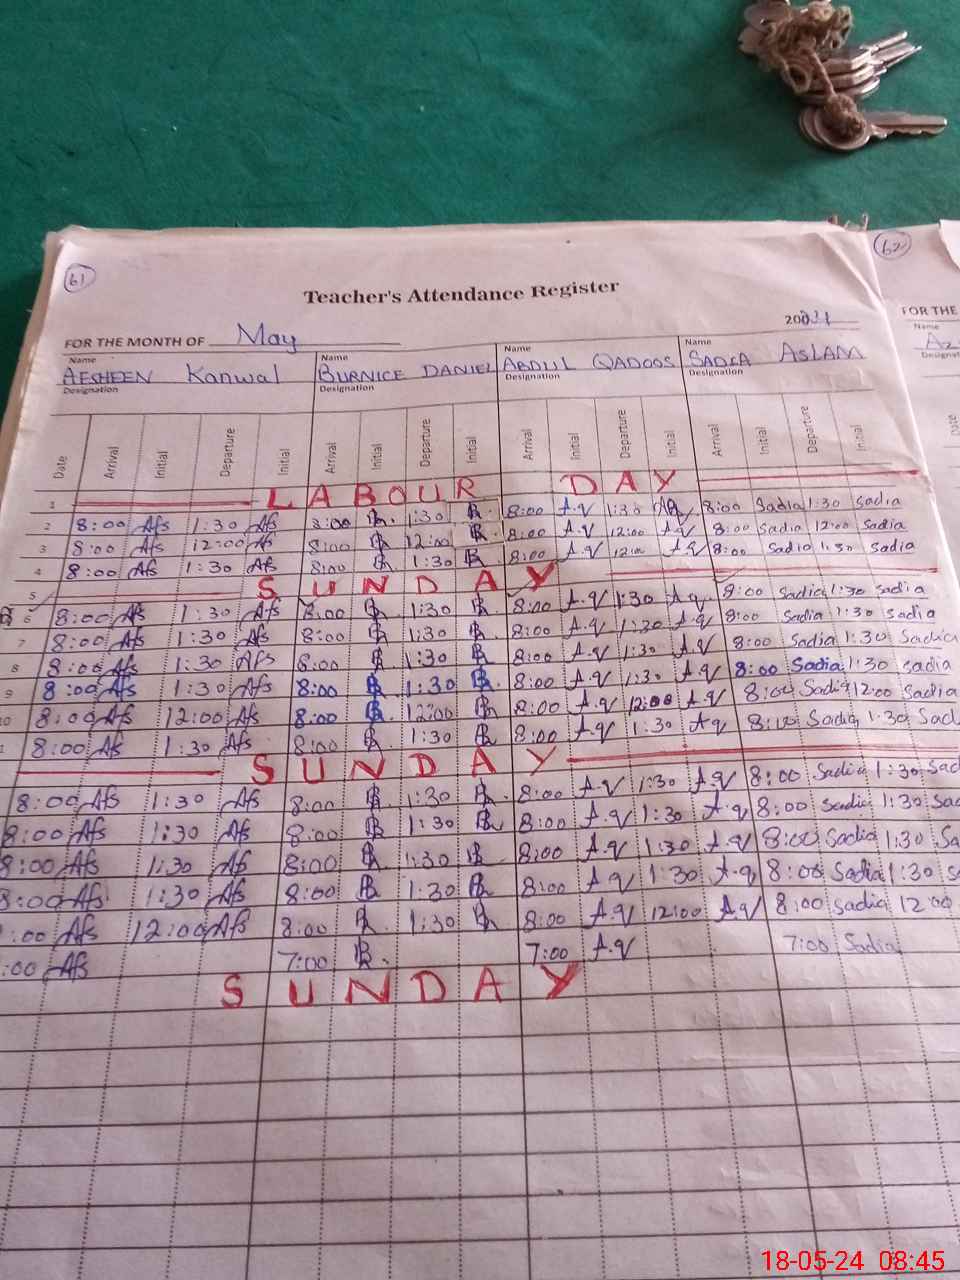 61
62
Teacher's Attendance Register
2024
FOR THE MONTH OF May
FOR THE
Name Name Name Name Name
AFSHEEN Kanwal BURNICE DANIEL ABDUL QADOOS SADIA ASLAM
Designation Designation Designation Designation
Date Arrival Initial Departure Initial Arrival Initial Departure Initial Arrival Initial Departure Initial Arrival Initial Departure Initial Date
1 LABOUR DAY
2 8:00 Afs 1:30 Afs 8:00 B. 1:30 B. 8:00 A.q 1:30 Aq 8:00 Sadia 1:30 sadia
3 8:00 Afs 12:00 Afs 8:00 B 12:00 B. 8:00 A.q 12:00 A.q 8:00 Sadia 12:00 sadia
4 8:00 Afs 1:30 Afs 8:00 B 1:30 B. 8:00 A.q 12:00 A.q 8:00 Sadia 1:30 sadia
5 SUNDAY
6 8:00 Afs 1:30 Afs 8:00 B 1:30 B. 8:00 A.q 1:30 A.q 8:00 Sadia 1:30 sadia
7 8:00 Afs 1:30 Afs 8:00 B 1:30 B. 8:00 A.q 1:30 A.q 8:00 Sadia 1:30 sadia
8 8:00 Afs 1:30 Afs 8:00 B 1:30 B 8:00 A.q 1:30 A.q 8:00 Sadia 1:30 Sadia
9 8:00 Afs 1:30 Afs 8:00 B 1:30 B. 8:00 A.q 1:30 A.q 8:00 Sadia 1:30 sadia
10 8:00 Afs 12:00 Afs 8:00 B. 12:00 B 8:00 A.q 12:00 A.q 8:00 Sadia 12:00 sadia
8:00 Afs 1:30 Afs 8:00 B 1:30 B 8:00 A.q 1:30 A.q 8:00 Sadia 1:30 Sad
SUNDAY
8:00 Afs 1:30 Afs 8:00 B 1:30 B. 8:00 A.q 1:30 A.q 8:00 Sadia 1:30 Sad
8:00 Afs 1:30 Afs 8:00 B 1:30 B 8:00 A.q 1:30 A.q 8:00 Sadia 1:30 Sad
8:00 Afs 1:30 Afs 8:00 B 1:30 B 8:00 A.q 1:30 A.q 8:00 Sadia 1:30 Sa
8:00 Afs 1:30 Afs 8:00 B 1:30 B 8:00 A.q 1:30 A.q 8:00 Sadia 1:30 s
:00 Afs 12:00 Afs 8:00 B 1:30 B 8:00 A.q 12:00 A.q 8:00 sadia 12:00
:00 Afs 7:00 B. 7:00 A.q 7:00 Sadia
SUNDAY
18-05-24 08:45